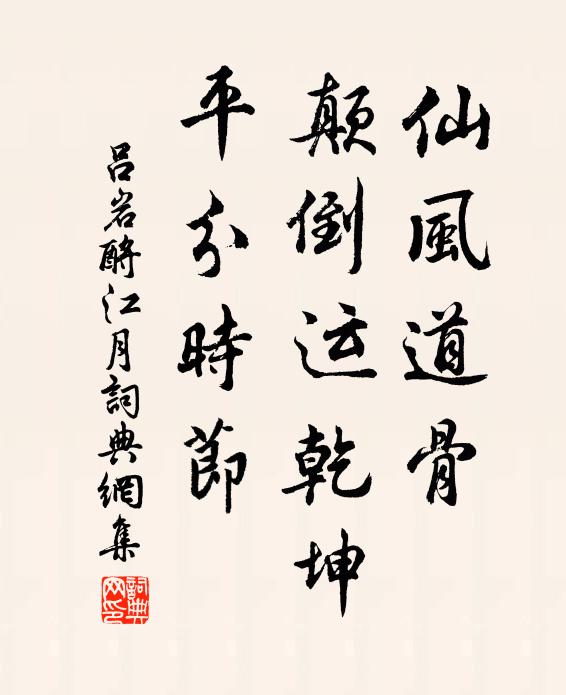 仙風道骨
顛倒运乾坤
平分時節
吕岩酹江月詞典網集
詞典网印